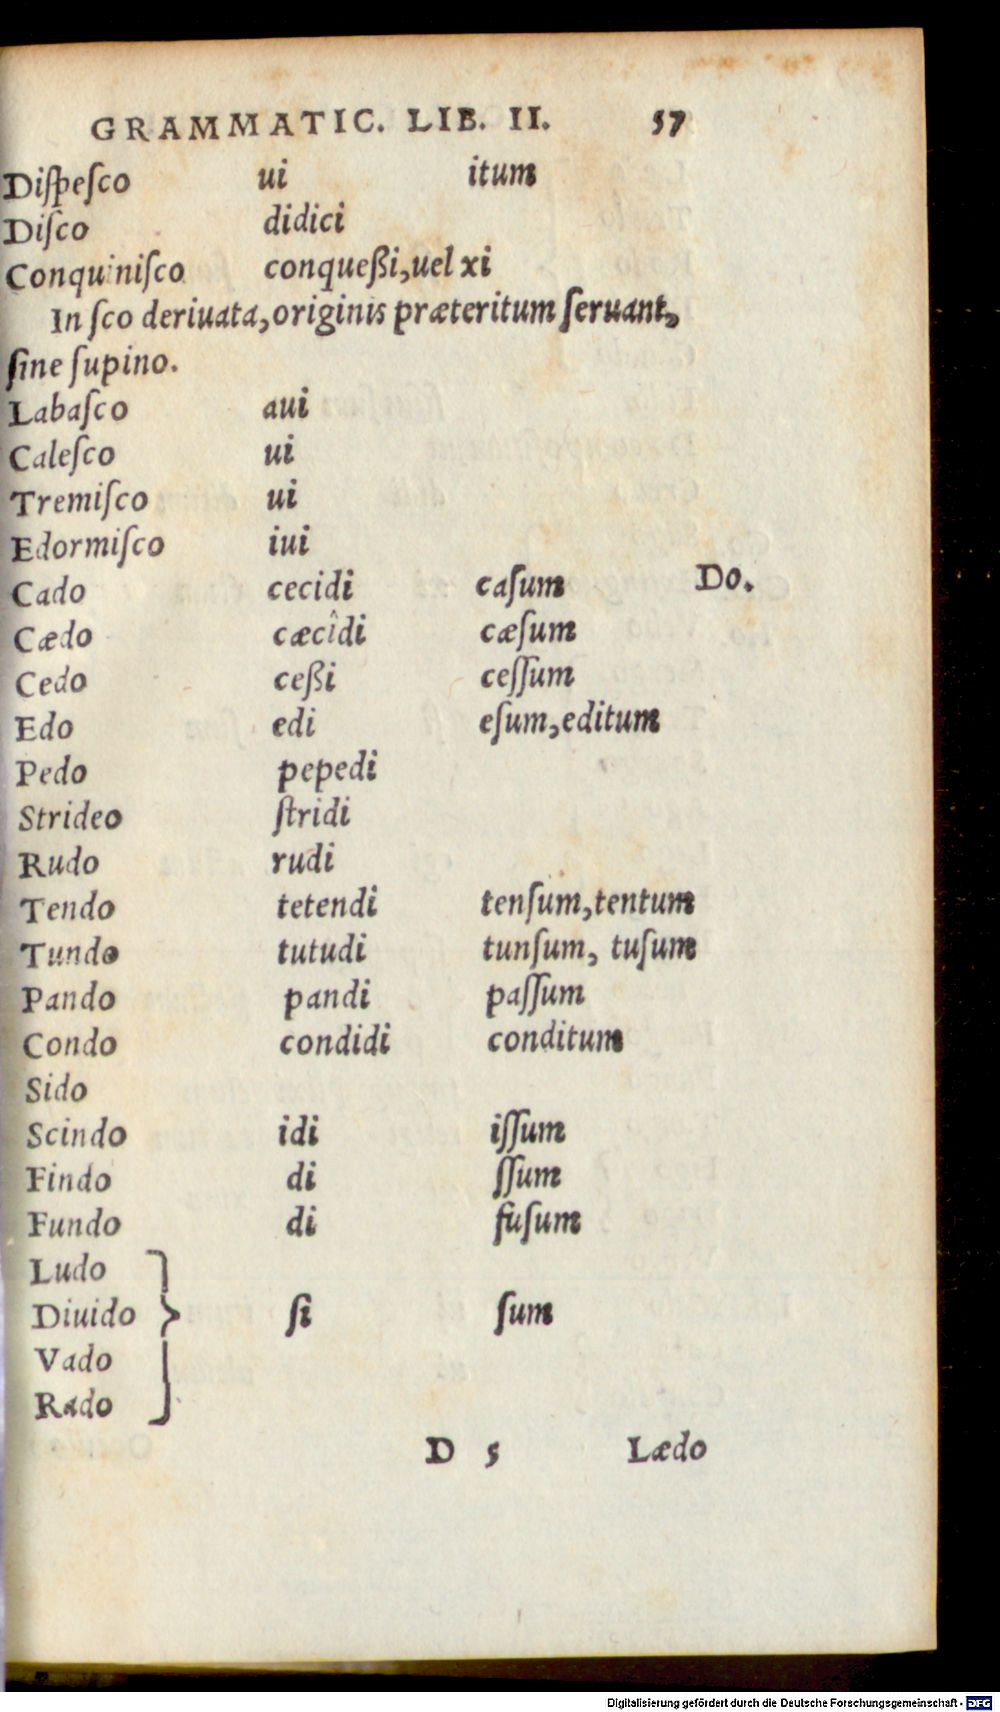 GRAMMATIC. LIB. II. 57
Diſpeſco ui itum
Diſco didici
Conquiniſco conqueßi,uel xi
In ſco deriuata,originis præteritum ſeruant,
ſine ſupino.
Labaſco aui
Caleſco ui
Tremiſco ui
Edormiſco iui
Cado cecidi caſum Do.
Cædo cæcîdi cæſum
Cedo ceßi ceſſum
Edo edi eſum,editum
Pedo pepedi
Strideo ſtridi
Rudo rudi
Tendo tetendi tenſum,tentum
Tundo tutudi tunſum, tuſum
Pando pandi paſſum
Condo condidi conditum
Sido
Scindo idi iſſum
Findo di ſſum
Fundo di fuſum
Ludo
Diuido ſi ſum
Vado
Rado
D 5 Lædo
Digitalisierung gefördert durch die Deutsche Forschungsgemeinschaft - DFG